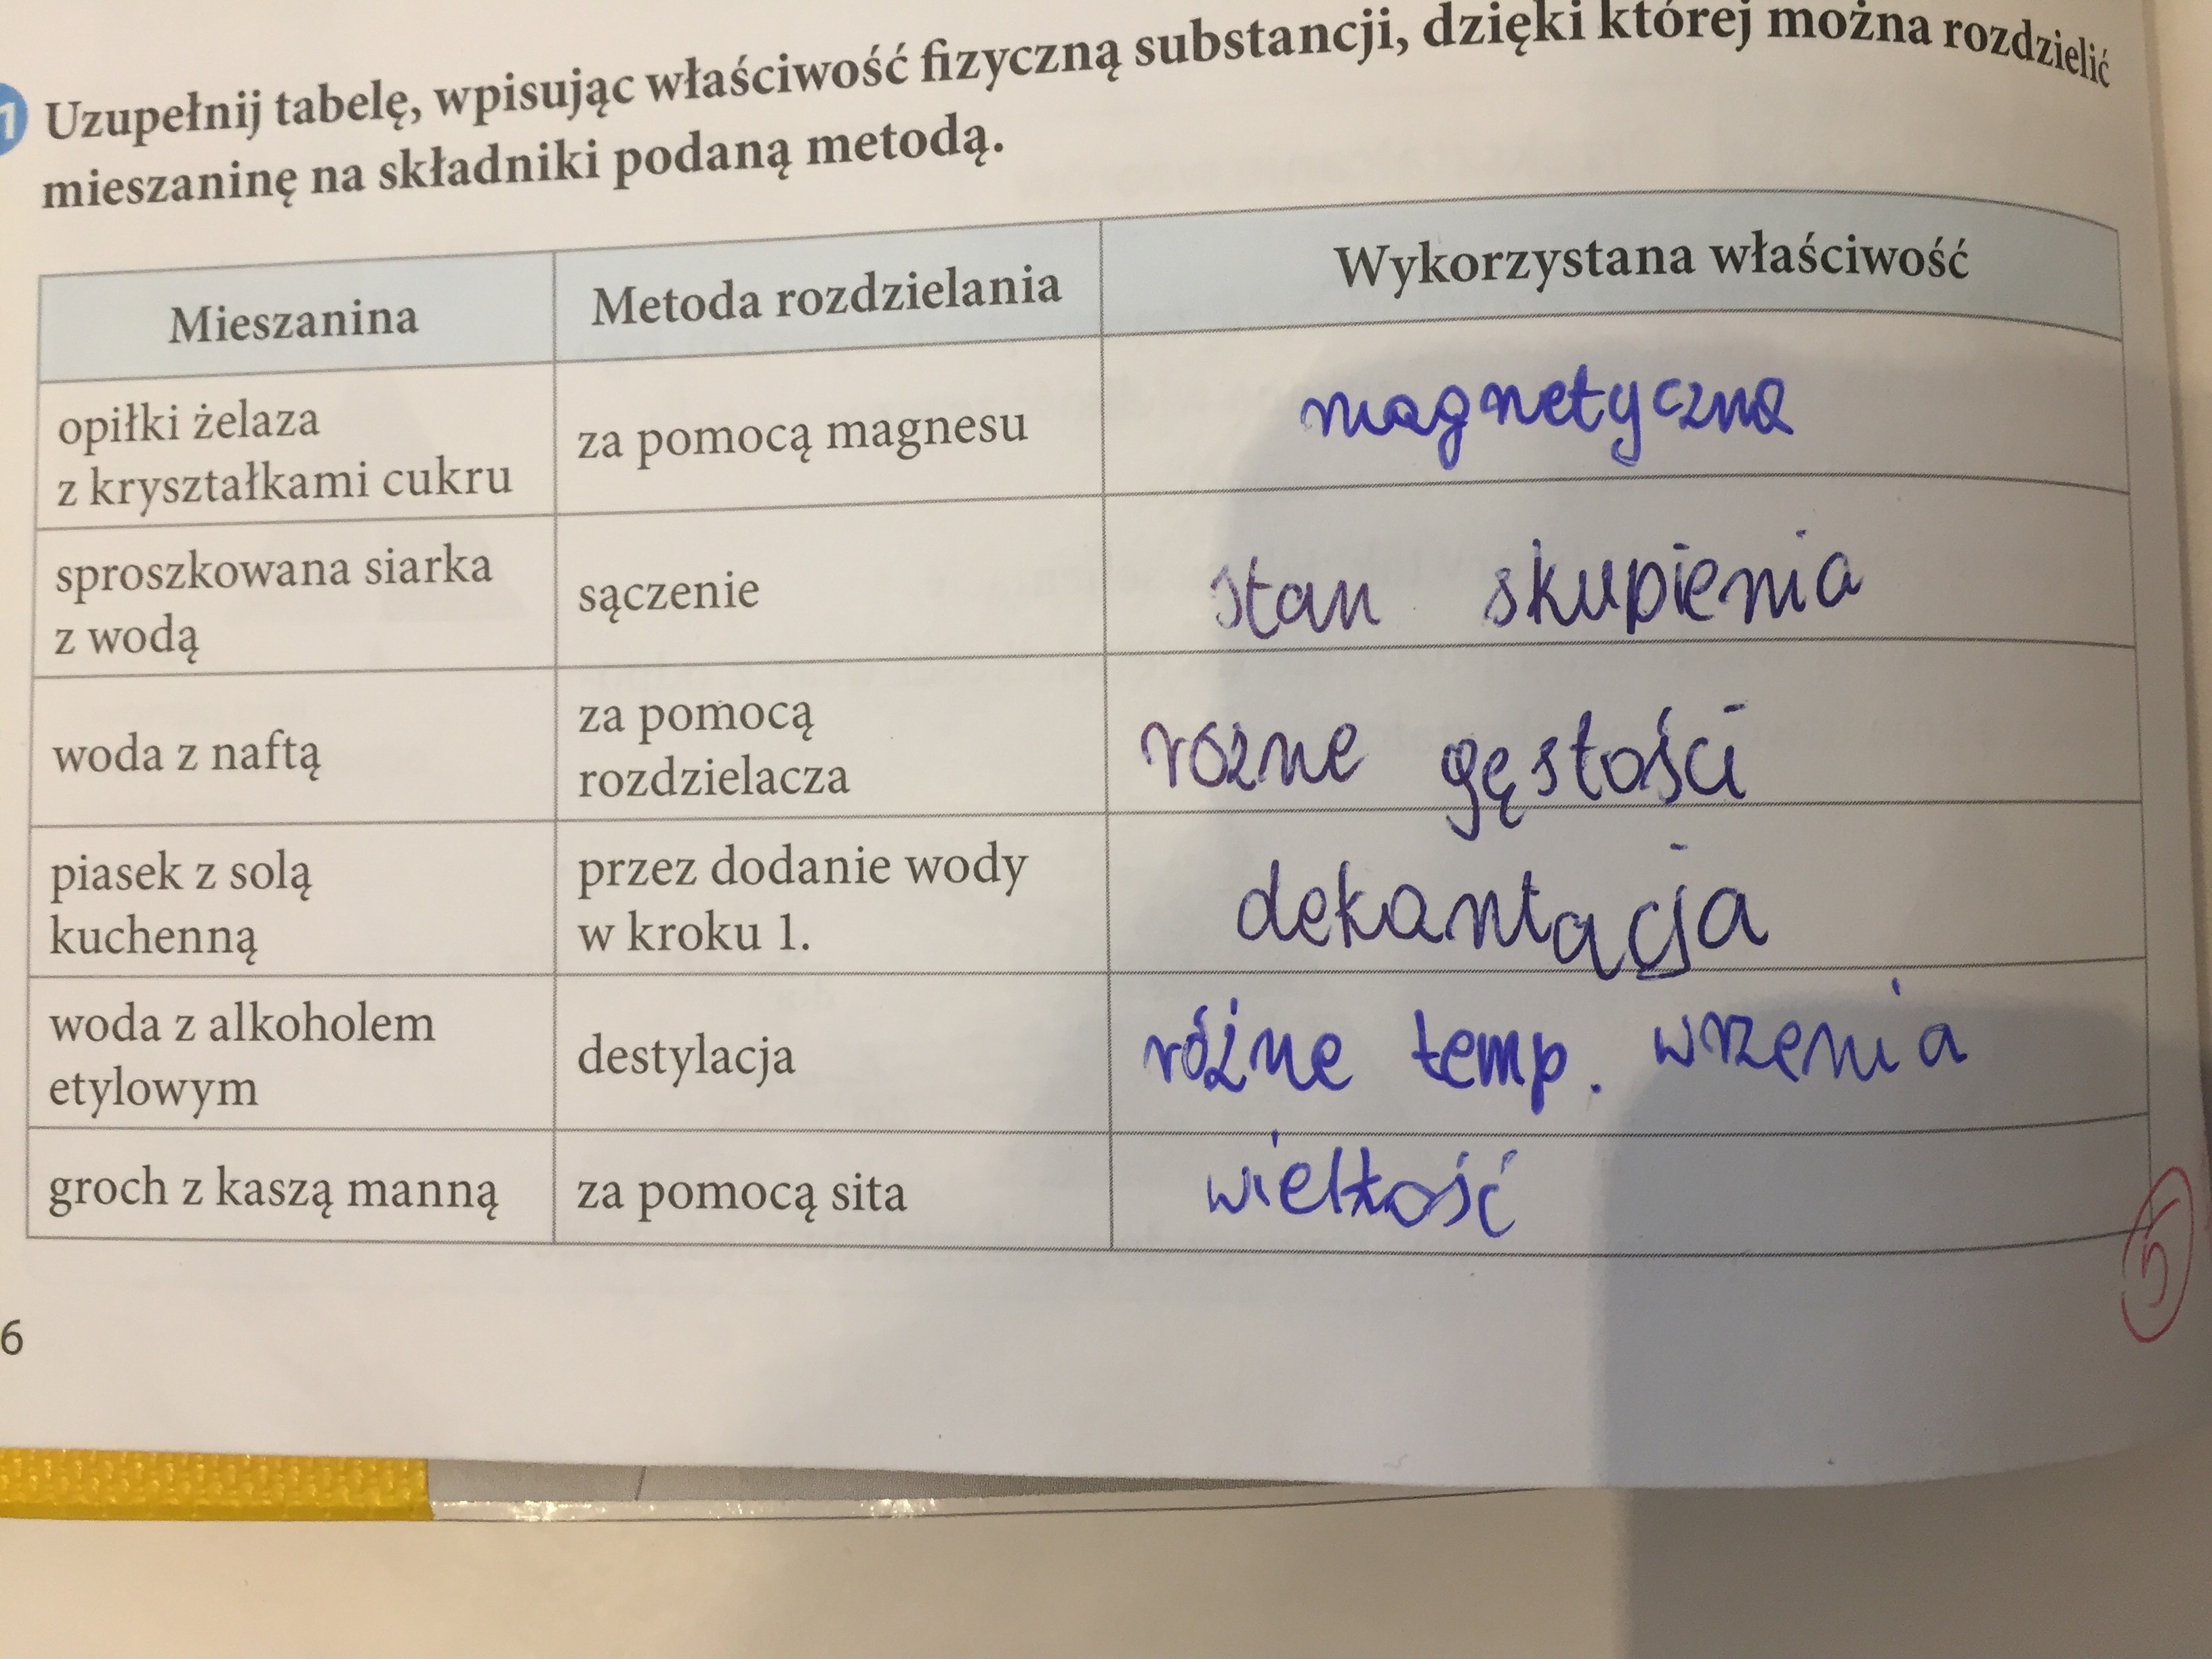 1 Uzupełnij tabelę, wpisując właściwość fizyczną substancji, dzięki której można rozdzielić
mieszaninę na składniki podaną metodą.
Mieszanina
Metoda rozdzielania
Wykorzystana właściwość
opiłki żelaza
z kryształkami cukru
za pomocą magnesu
magnetyczna
sproszkowana siarka
z wodą
sączenie
stan skupienia
woda z naftą
za pomocą
rozdzielacza
rózne gęstości
piasek z solą
kuchenną
przez dodanie wody
w kroku 1.
dekantacja
woda z alkoholem
etylowym
destylacja
różne temp. wrzenia
groch z kaszą manną
za pomocą sita
wielkość
5
6